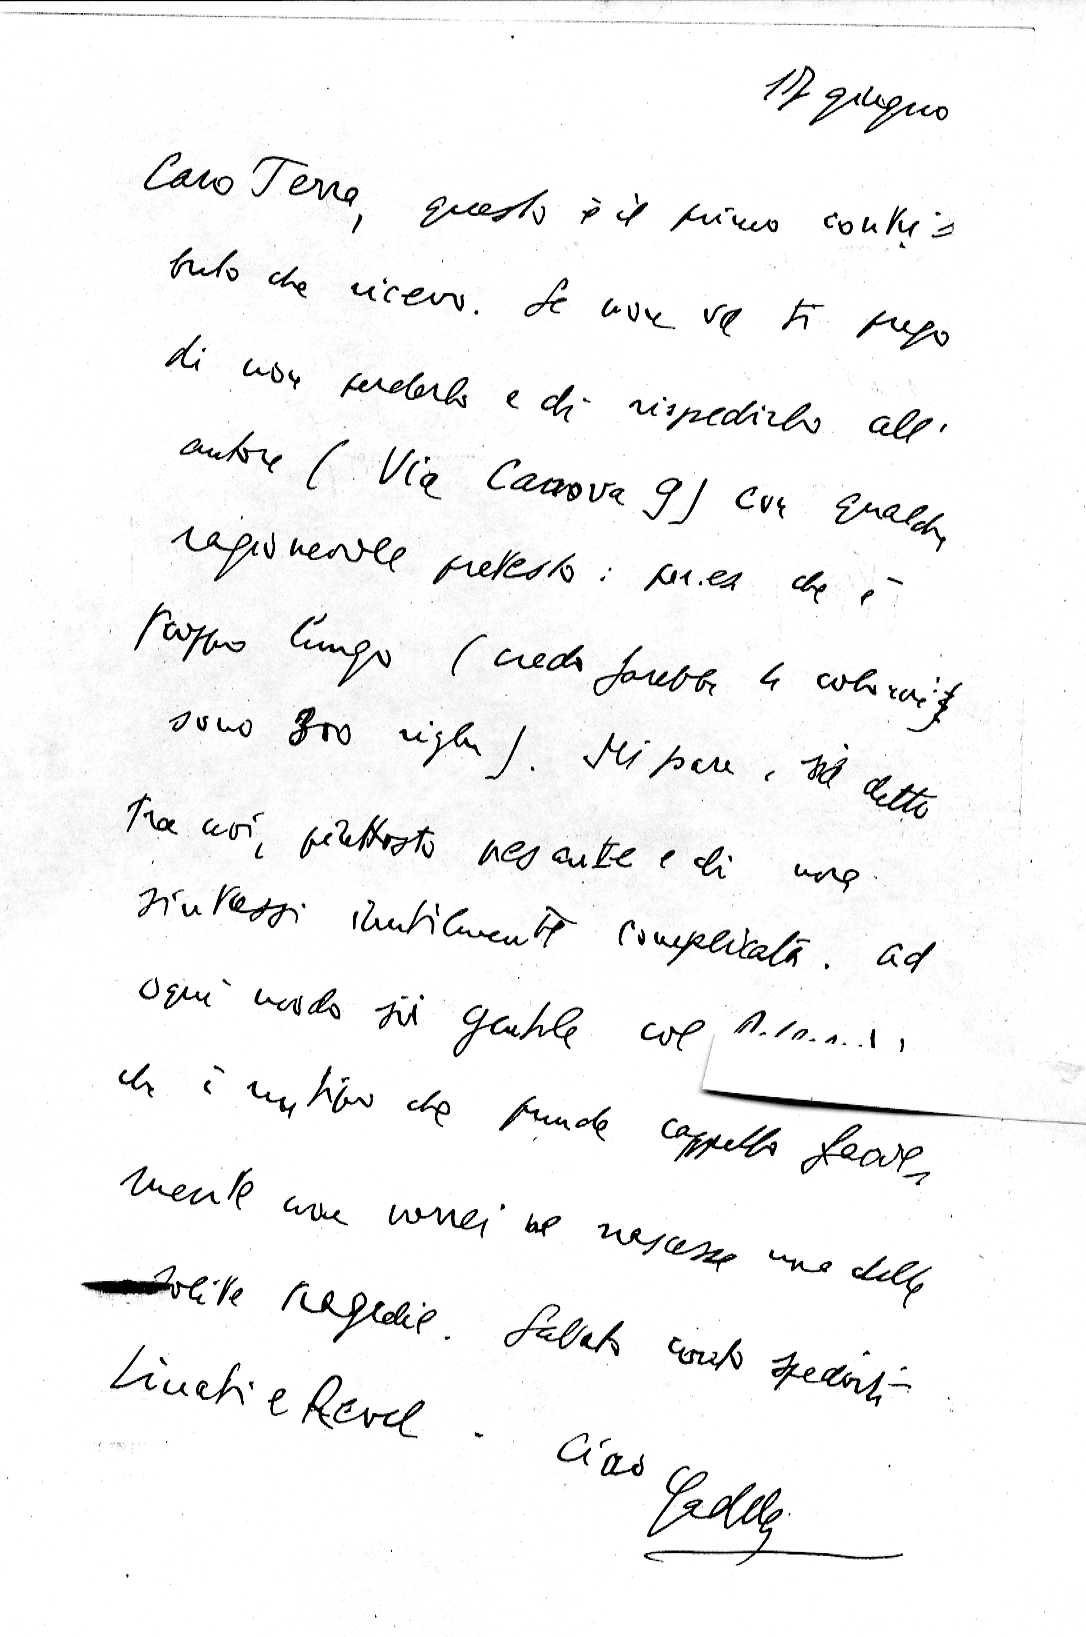 17 giugno
Caro Terra, questo è il primo contri=
buto che ricevo. Se non va ti prego
di non perderlo e di rispedirlo all'
autore (Via Canova 9) con qualche
ragionevole pretesto: per.es che è
troppo lungo (credo sarebbe 4 colonne;
sono 300 righe). Mi pare, sia detto
tra noi, piuttosto pesante e di una
sintassi inutilmente complicata. ad
ogni modo sii gentile col
che è un tipo che prende cappello facil=
mente non vorrei ne nascesse una delle
solite tragedie. Sabato conto spedirti
Linati e Revel. Ciao